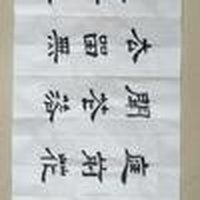 庭前花
開花落
去留無